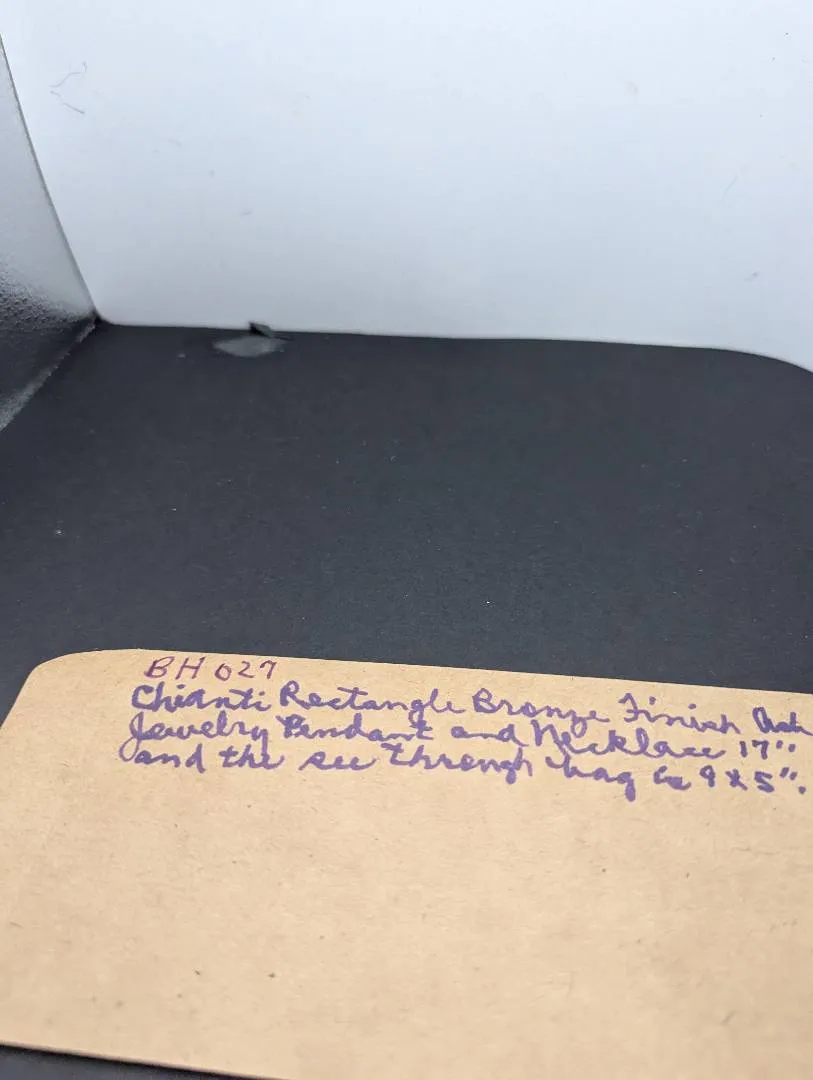 BH 027
Chianti Rectangle Bronze Finish Ash
Jewelry Pendant and Necklace 17"
and the see through bag is 9 x 5".